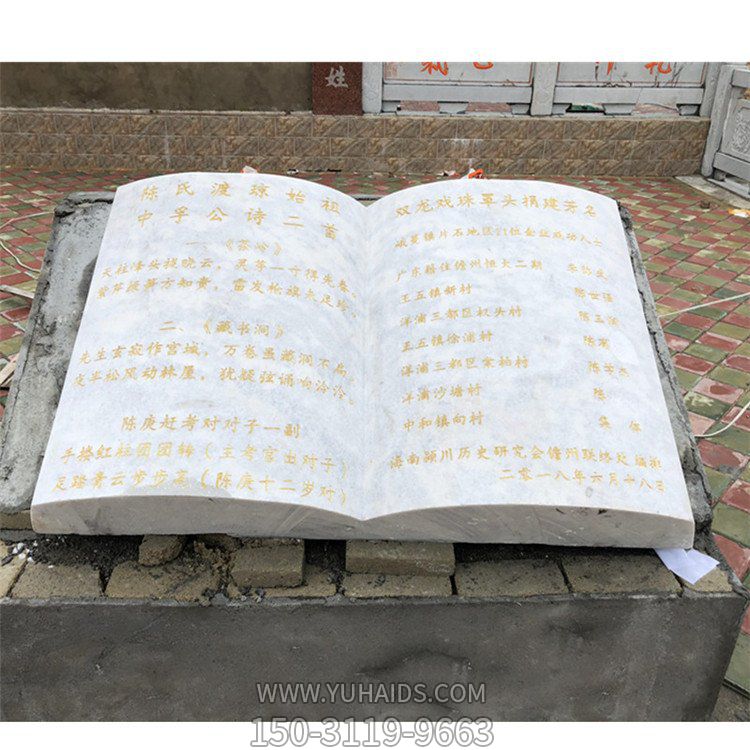 姓
陈氏渡琼始祖
中孚公诗二首
一、《苔冷》
天柱峰头接晓云,灵等一寸得先春。
紫芽绿箬方知贵,雷发枪旗大足珍。
二、《藏书洞》
先生玄寂作宫城,万卷虽藏洞不扃。
夜半松风动林屋,犹疑弦诵响泠泠。
陈庚赶考对对子一副
手搭红板团团转(王考官出对子)
足踏青云步步高(陈庚十二岁对)
双龙戏珠罩头捐建芳名
峨蔓镇片石地区
广东籍住儋州恒大二期
王五镇新村 陈世强
洋浦三都区权头村 陈玉
王五镇徐浦村 陈
洋浦三都区棠柏村 陈
洋浦沙塘村 陈
中和镇向村 吴
海南颍川历史研究会儋州联络处编
二〇一八年六月十八日
WWW.YUHAIDS.COM
150-3119-9663